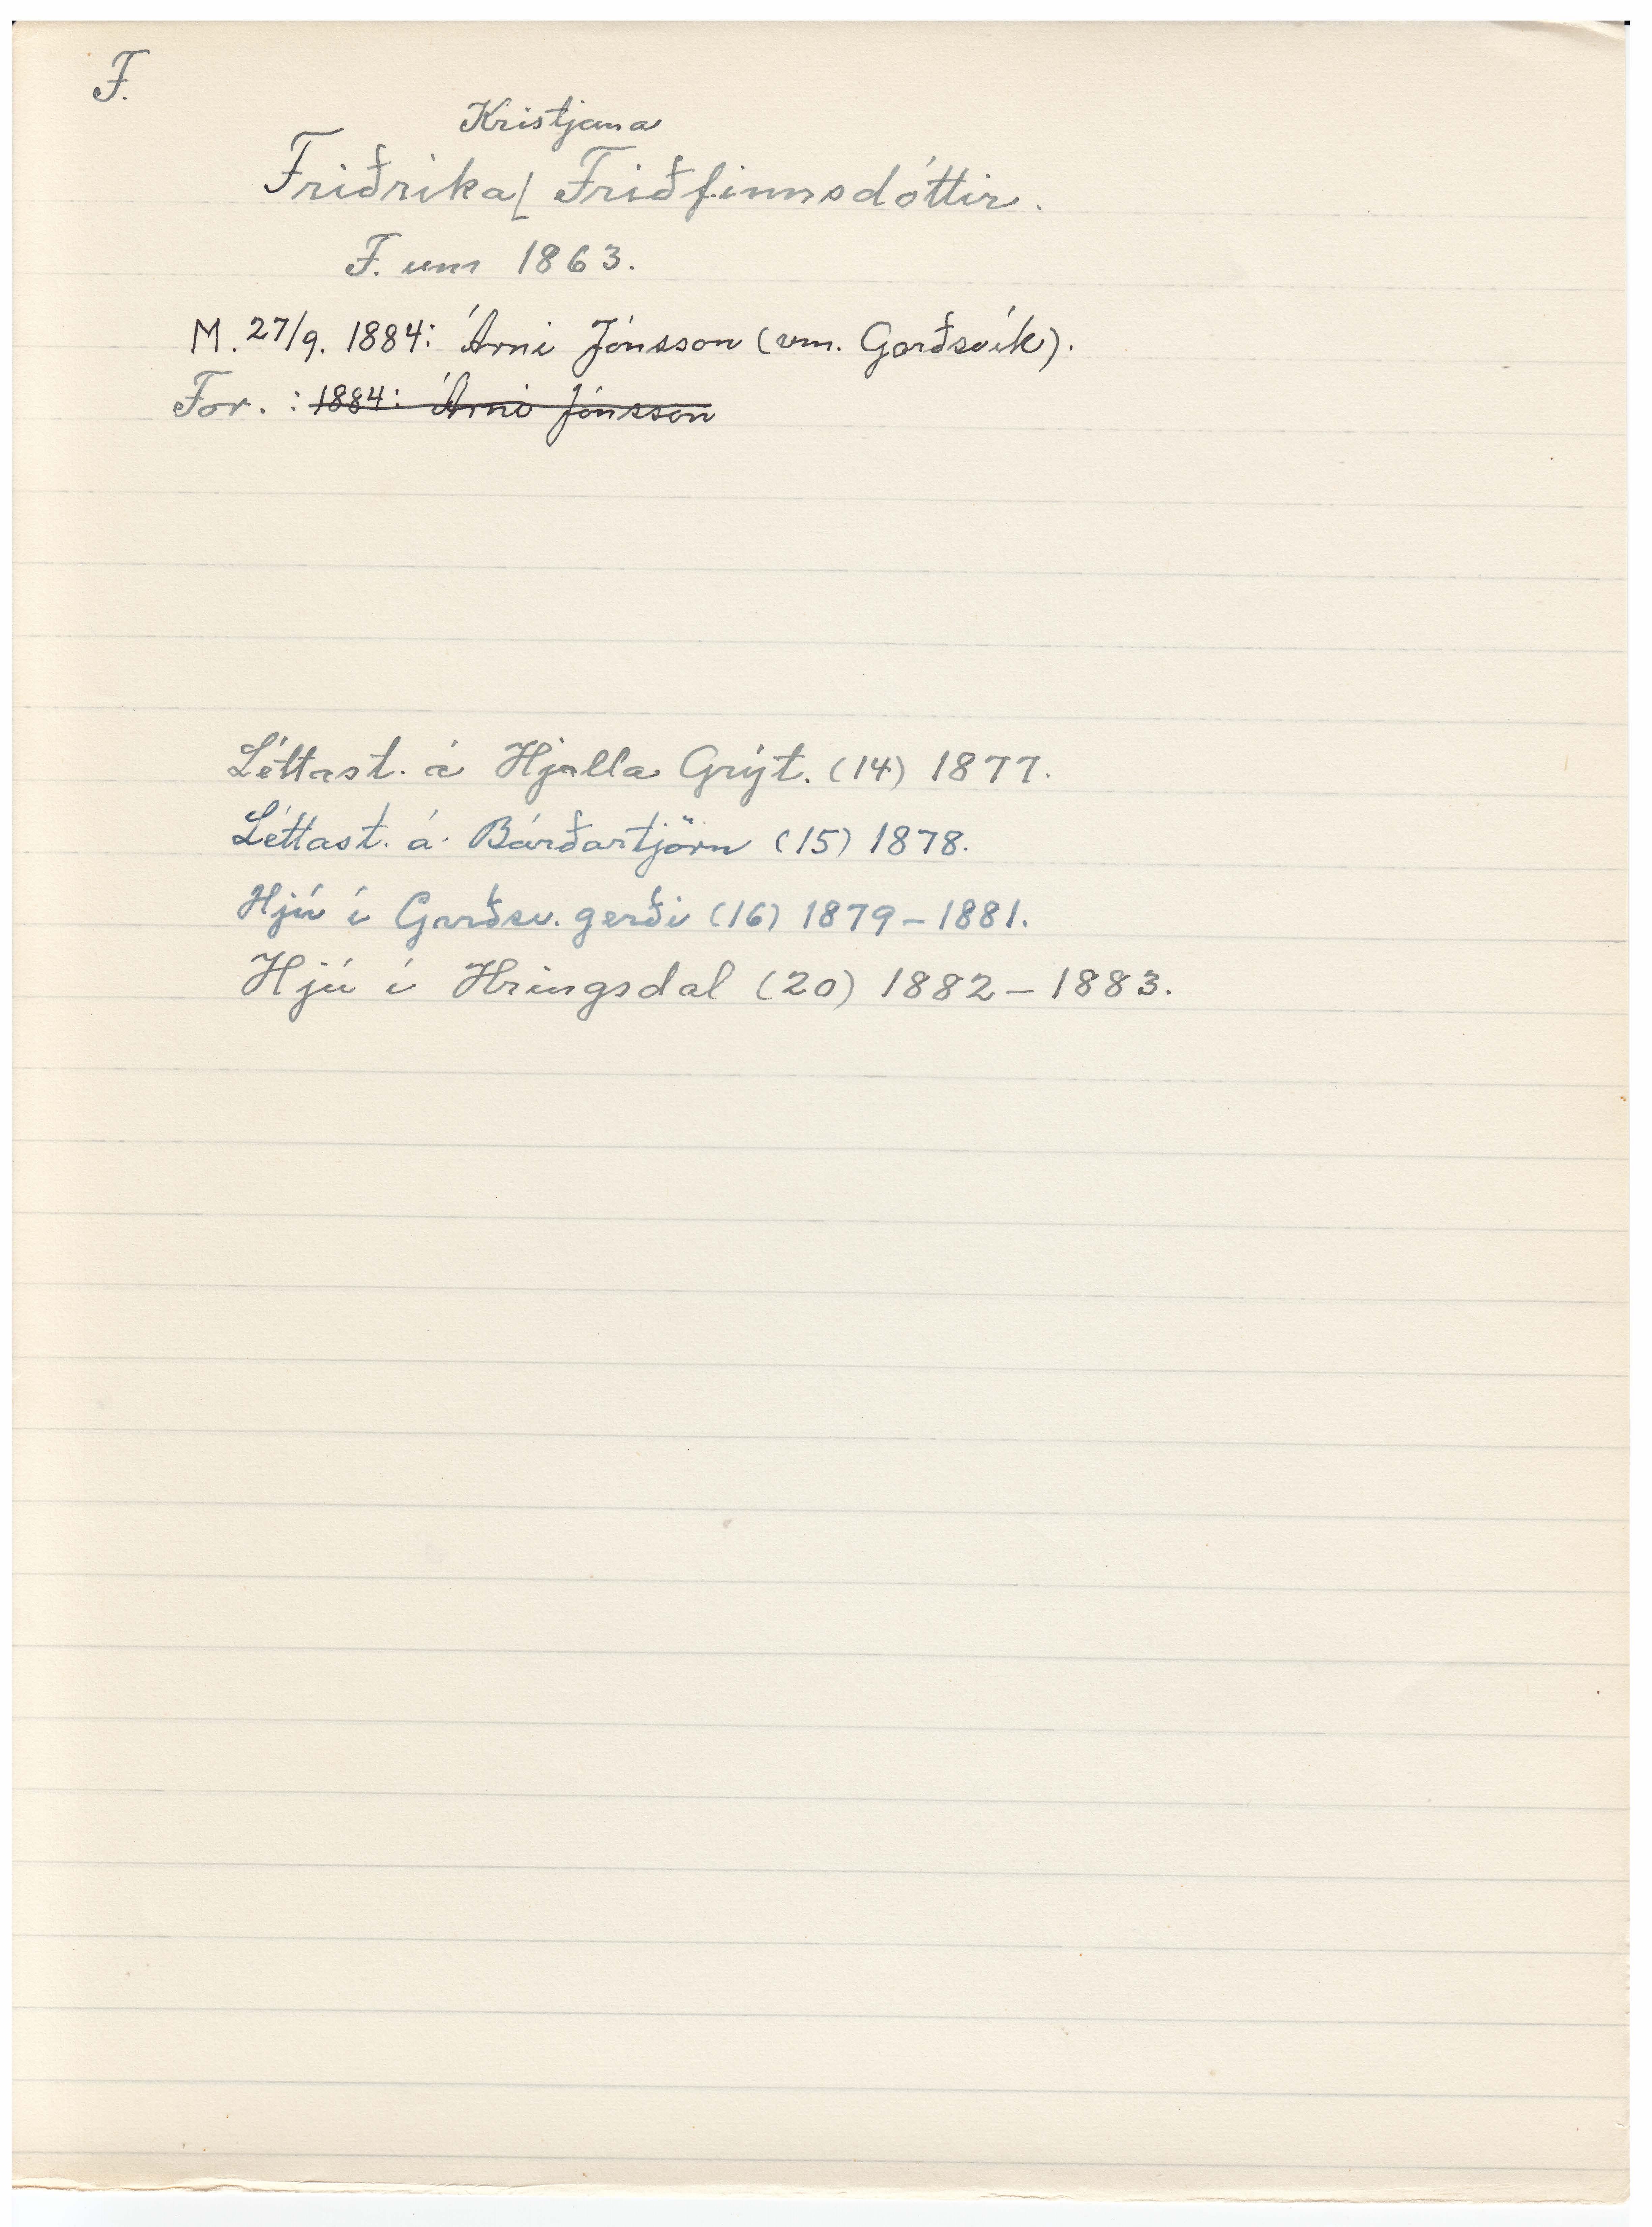 F.
Kristjana
Friðrika Friðfinnsdóttir.
F. um 1863.
M. 27/9. 1884: Árni Jónsson (vm. Garðsvík).
For. : 1884: Árni Jónsson
Léttast. á Hjalla Grýt. (14) 1877.
Léttast. á Bárðartjörn (15) 1878.
Hjú í Garðsv. gerði (16) 1879-1881.
Hjú í Hringsdal (20) 1882-1883.